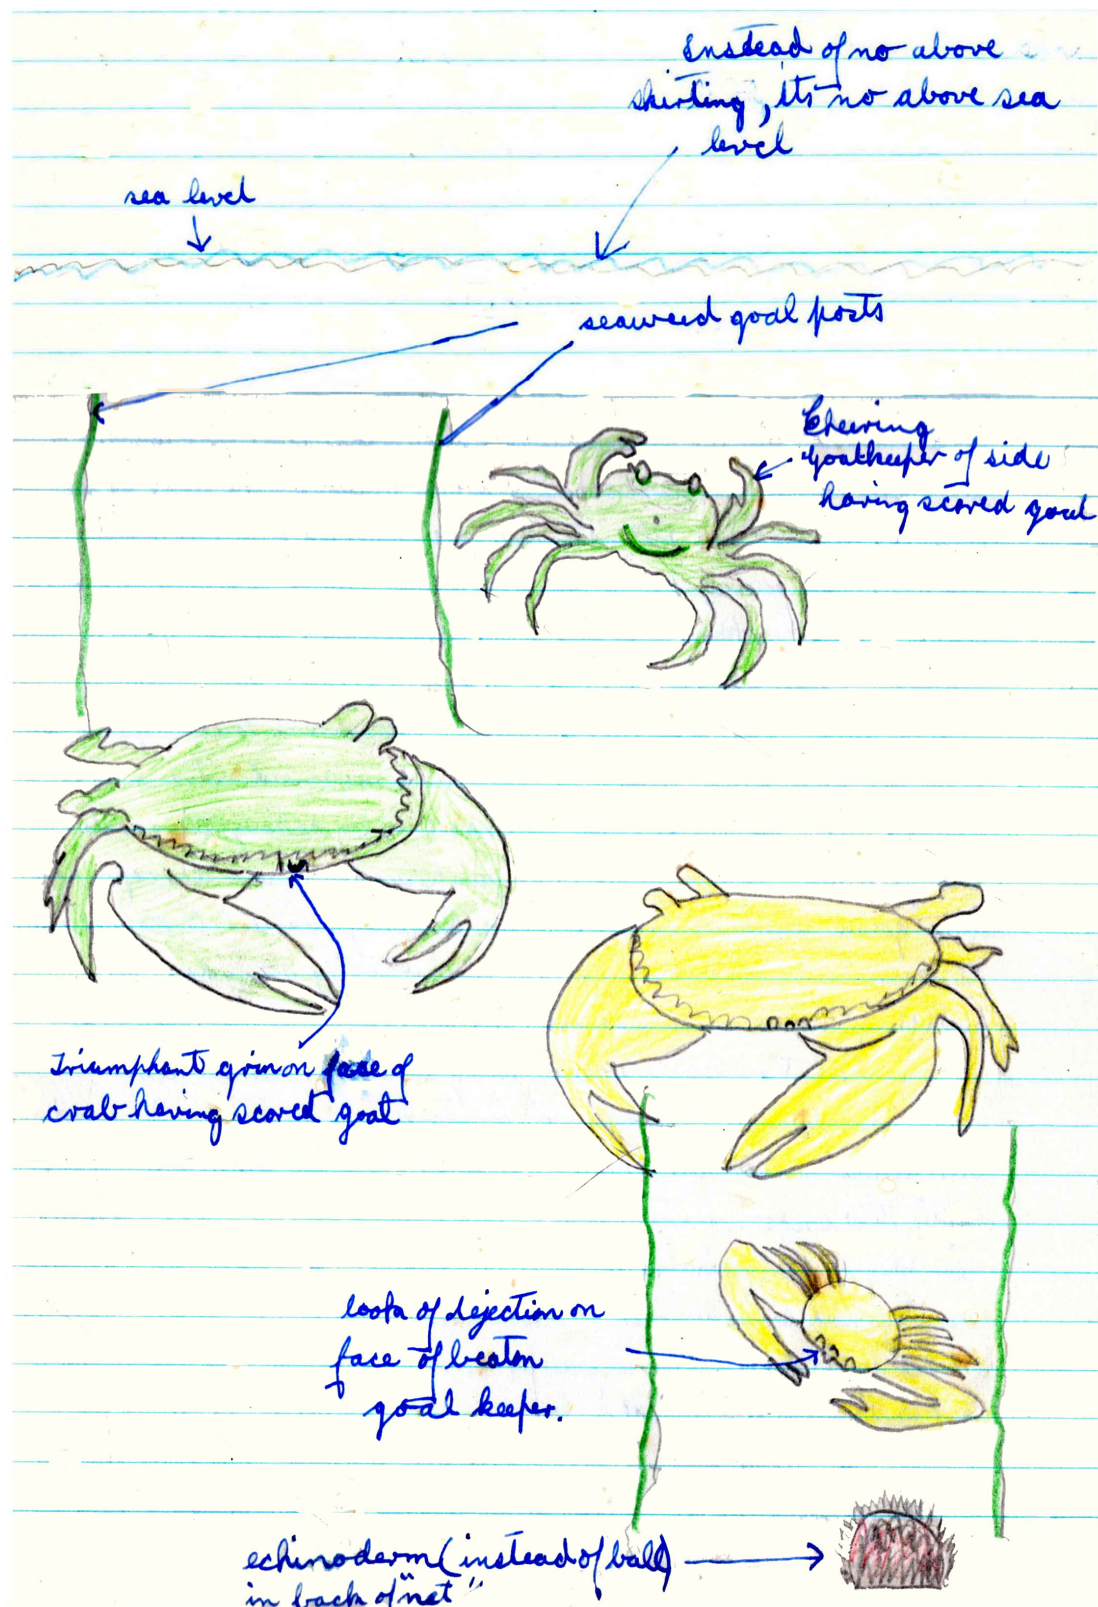 Instead of no above
skirting, its no above sea
level
sea level
seaweed goal posts
Cheering
goalkeeper of side
having scored goal
Triumphant grin on face of
crab having scored goal
look of dejection on
face of beaton
goal keeper.
echinoderm (instead of ball)
in back of "net"